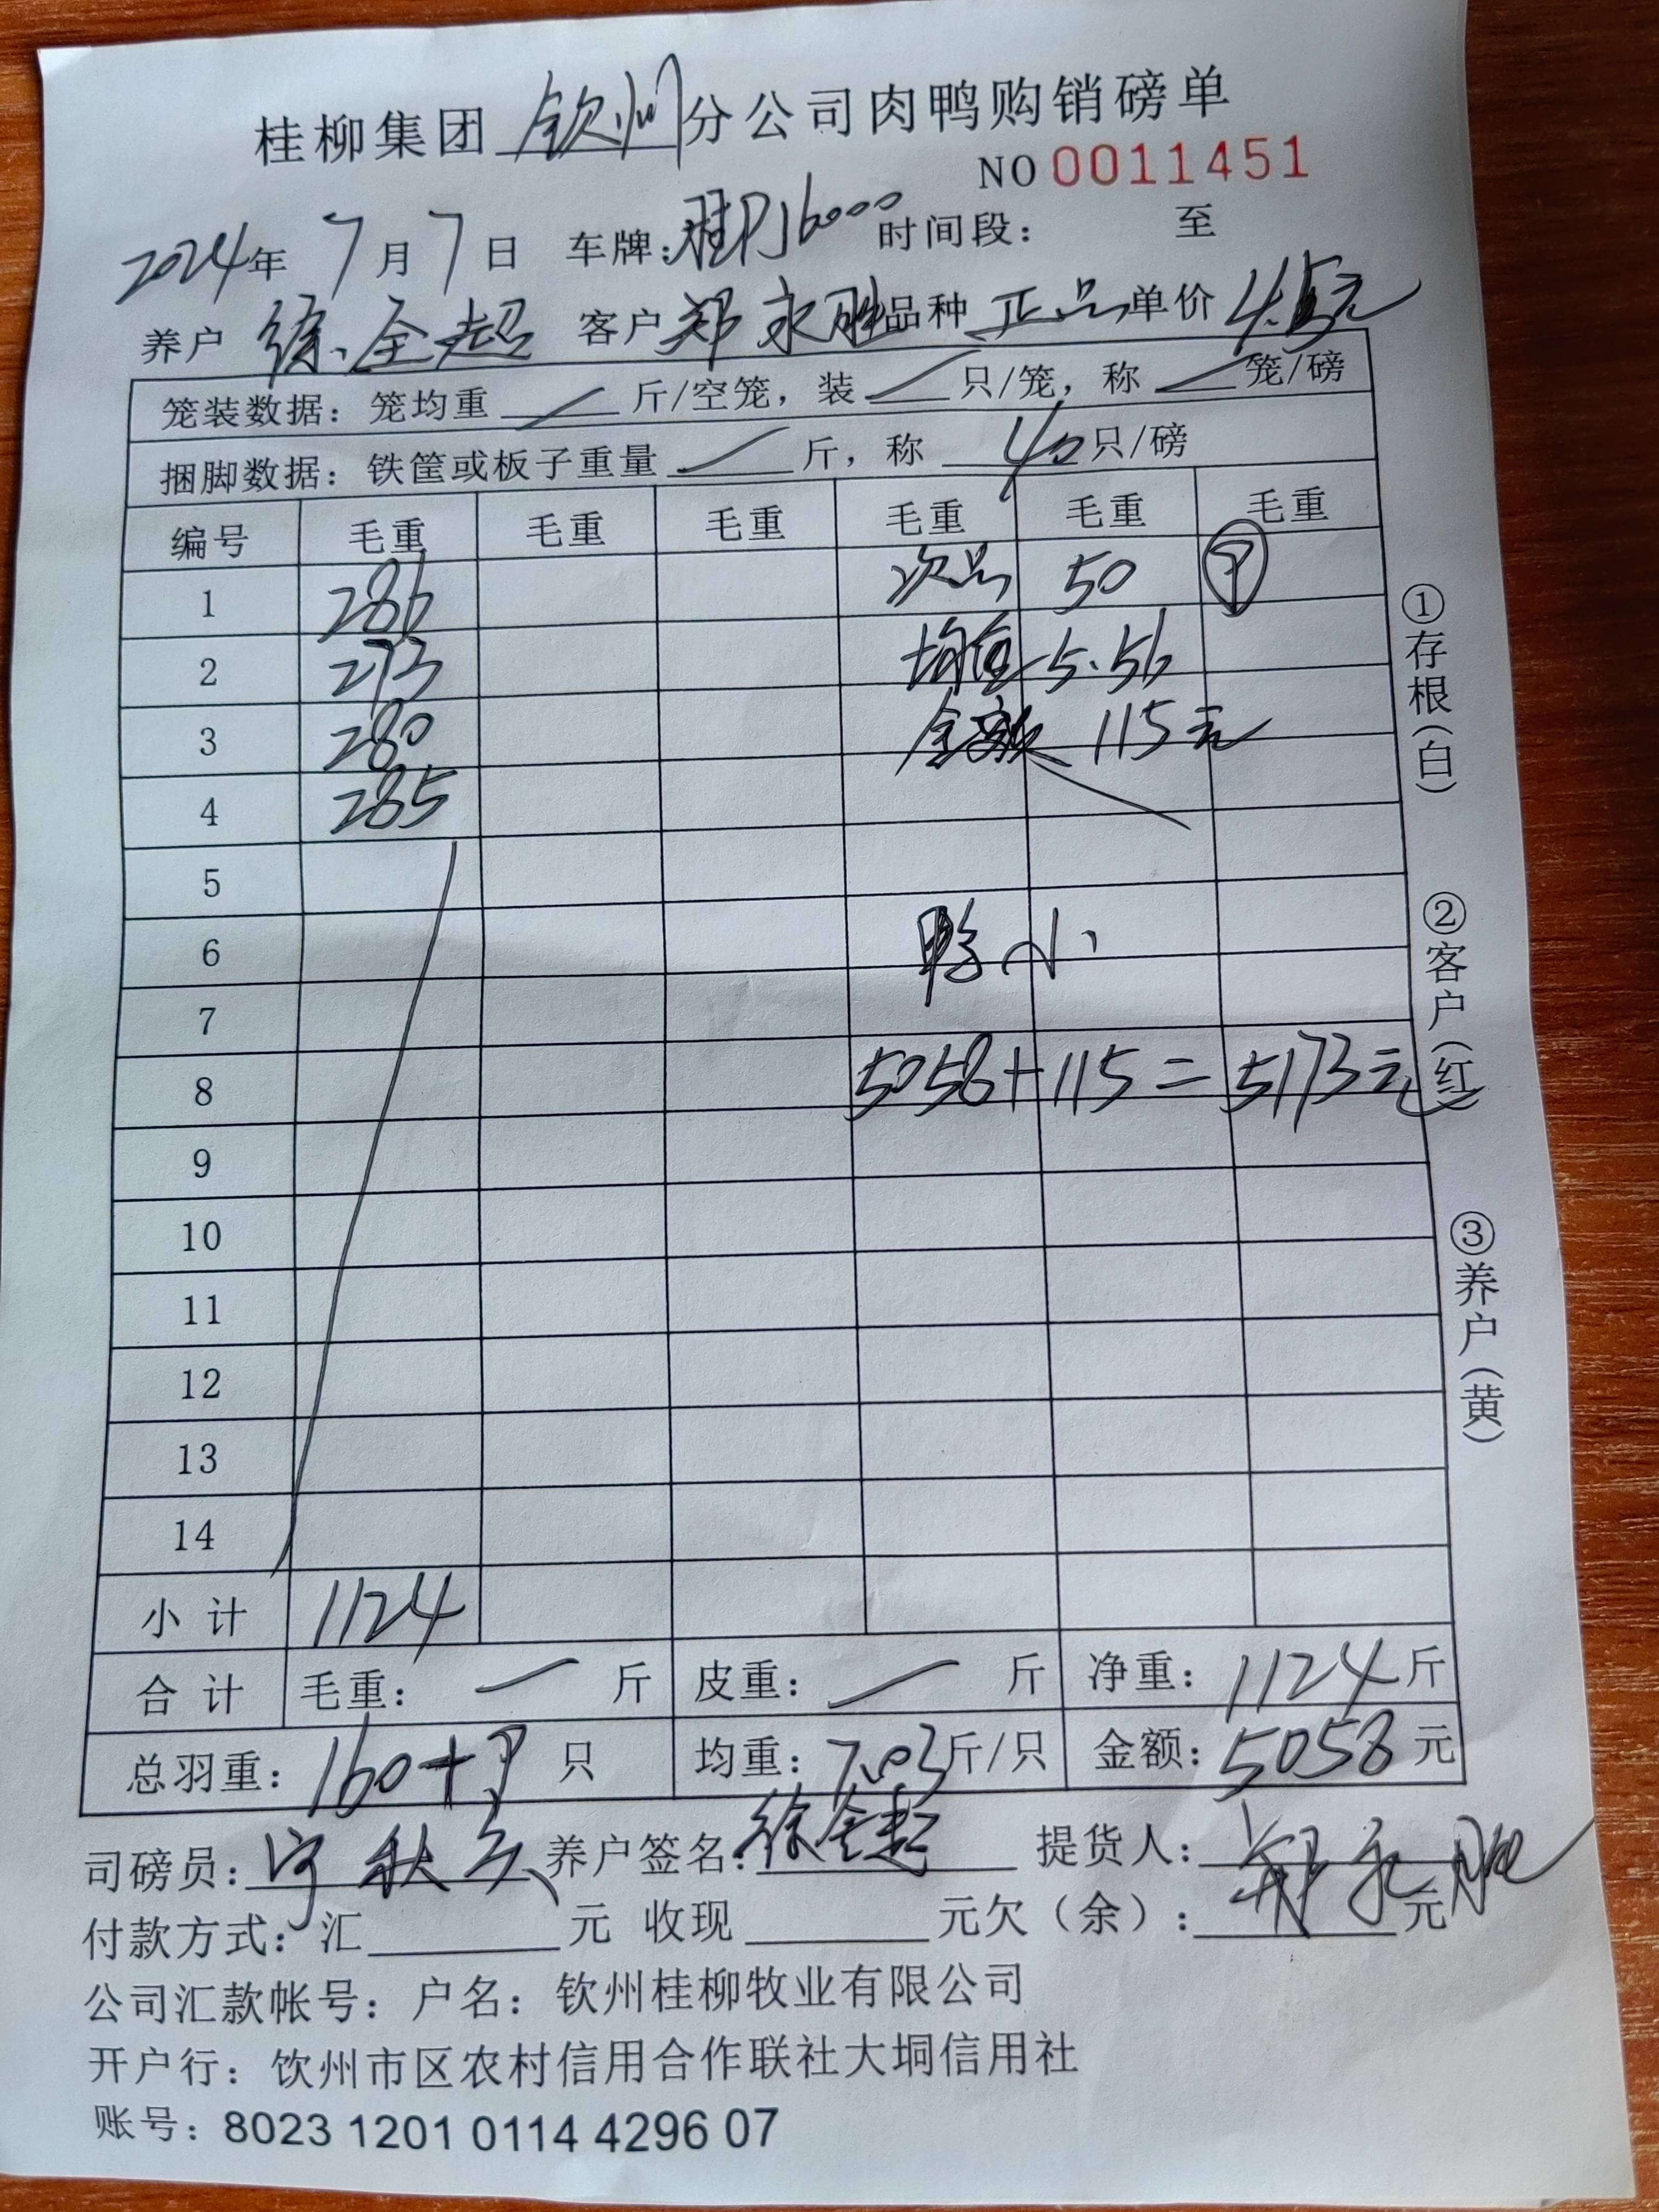 桂柳集团 钦州 分公司肉鸭购销磅单
NO 0011451
2024年 7月7日 车牌:桂PJ6000 时间段: 至
养户 徐全超 客户 郑永胜 品种 正品 单价 4.5元
笼装数据: 笼均重 斤/空笼, 装 只/笼, 称 笼/磅
捆脚数据: 铁筐或板子重量 斤, 称 40 只/磅
编号 毛重 毛重 毛重 毛重 毛重 毛重
1 286 次品 50
2 273 均重 5.56
3 280 金额 115元
4 285
5
6 鸭小
7
8 5058+115=5173元
9
10
11
12
13
14
小计 1124
合计 毛重: 斤 皮重: 斤 净重: 1124斤
总羽重: 160+ 只 均重: 7.03斤/只 金额: 5058元
司磅员: 养户签名: 徐全超 提货人: 郑永胜
付款方式: 汇 元 收现 元欠(余): 元
公司汇款帐号: 户名: 钦州桂柳牧业有限公司
开户行: 饮州市区农村信用合作联社大垌信用社
账号: 8023 1201 0114 4296 07
①存根(白)
②客户(红)
③养户(黄)